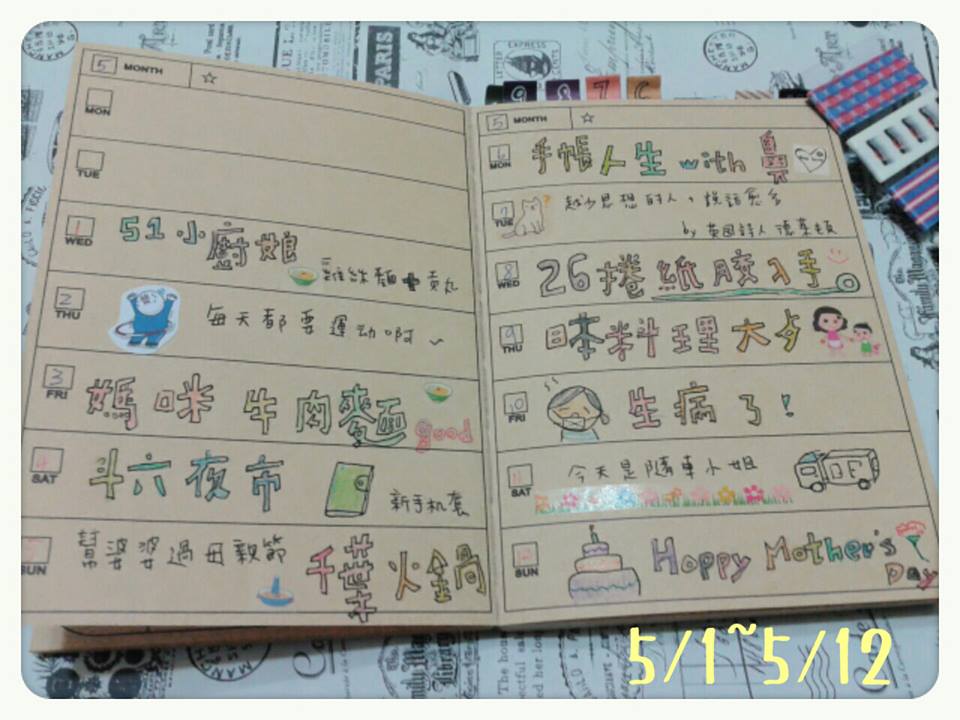 5 MONTH ☆
MON
TUE
1 WED 51 小廚娘
雞絲麵 + 貢丸
2 THU 每天都要運动啊~
3 FRI 媽咪牛肉麵 good
4 SAT 斗六夜市
新手机套
5 SUN 幫婆婆過母親節
千葉火鍋
5 MONTH ☆
6 MON 手帳人生 with 鼻
7 TUE 越少思想的人,損話愈多
by 英國詩人 德萊頓
8 WED 26捲紙膠入手
9 THU 日本料理大歺
10 FRI 生病了!
11 SAT 今天是隨車小姐
12 SUN Happy Mother's
Day
PARIS
EXPRESS
5/1~5/12